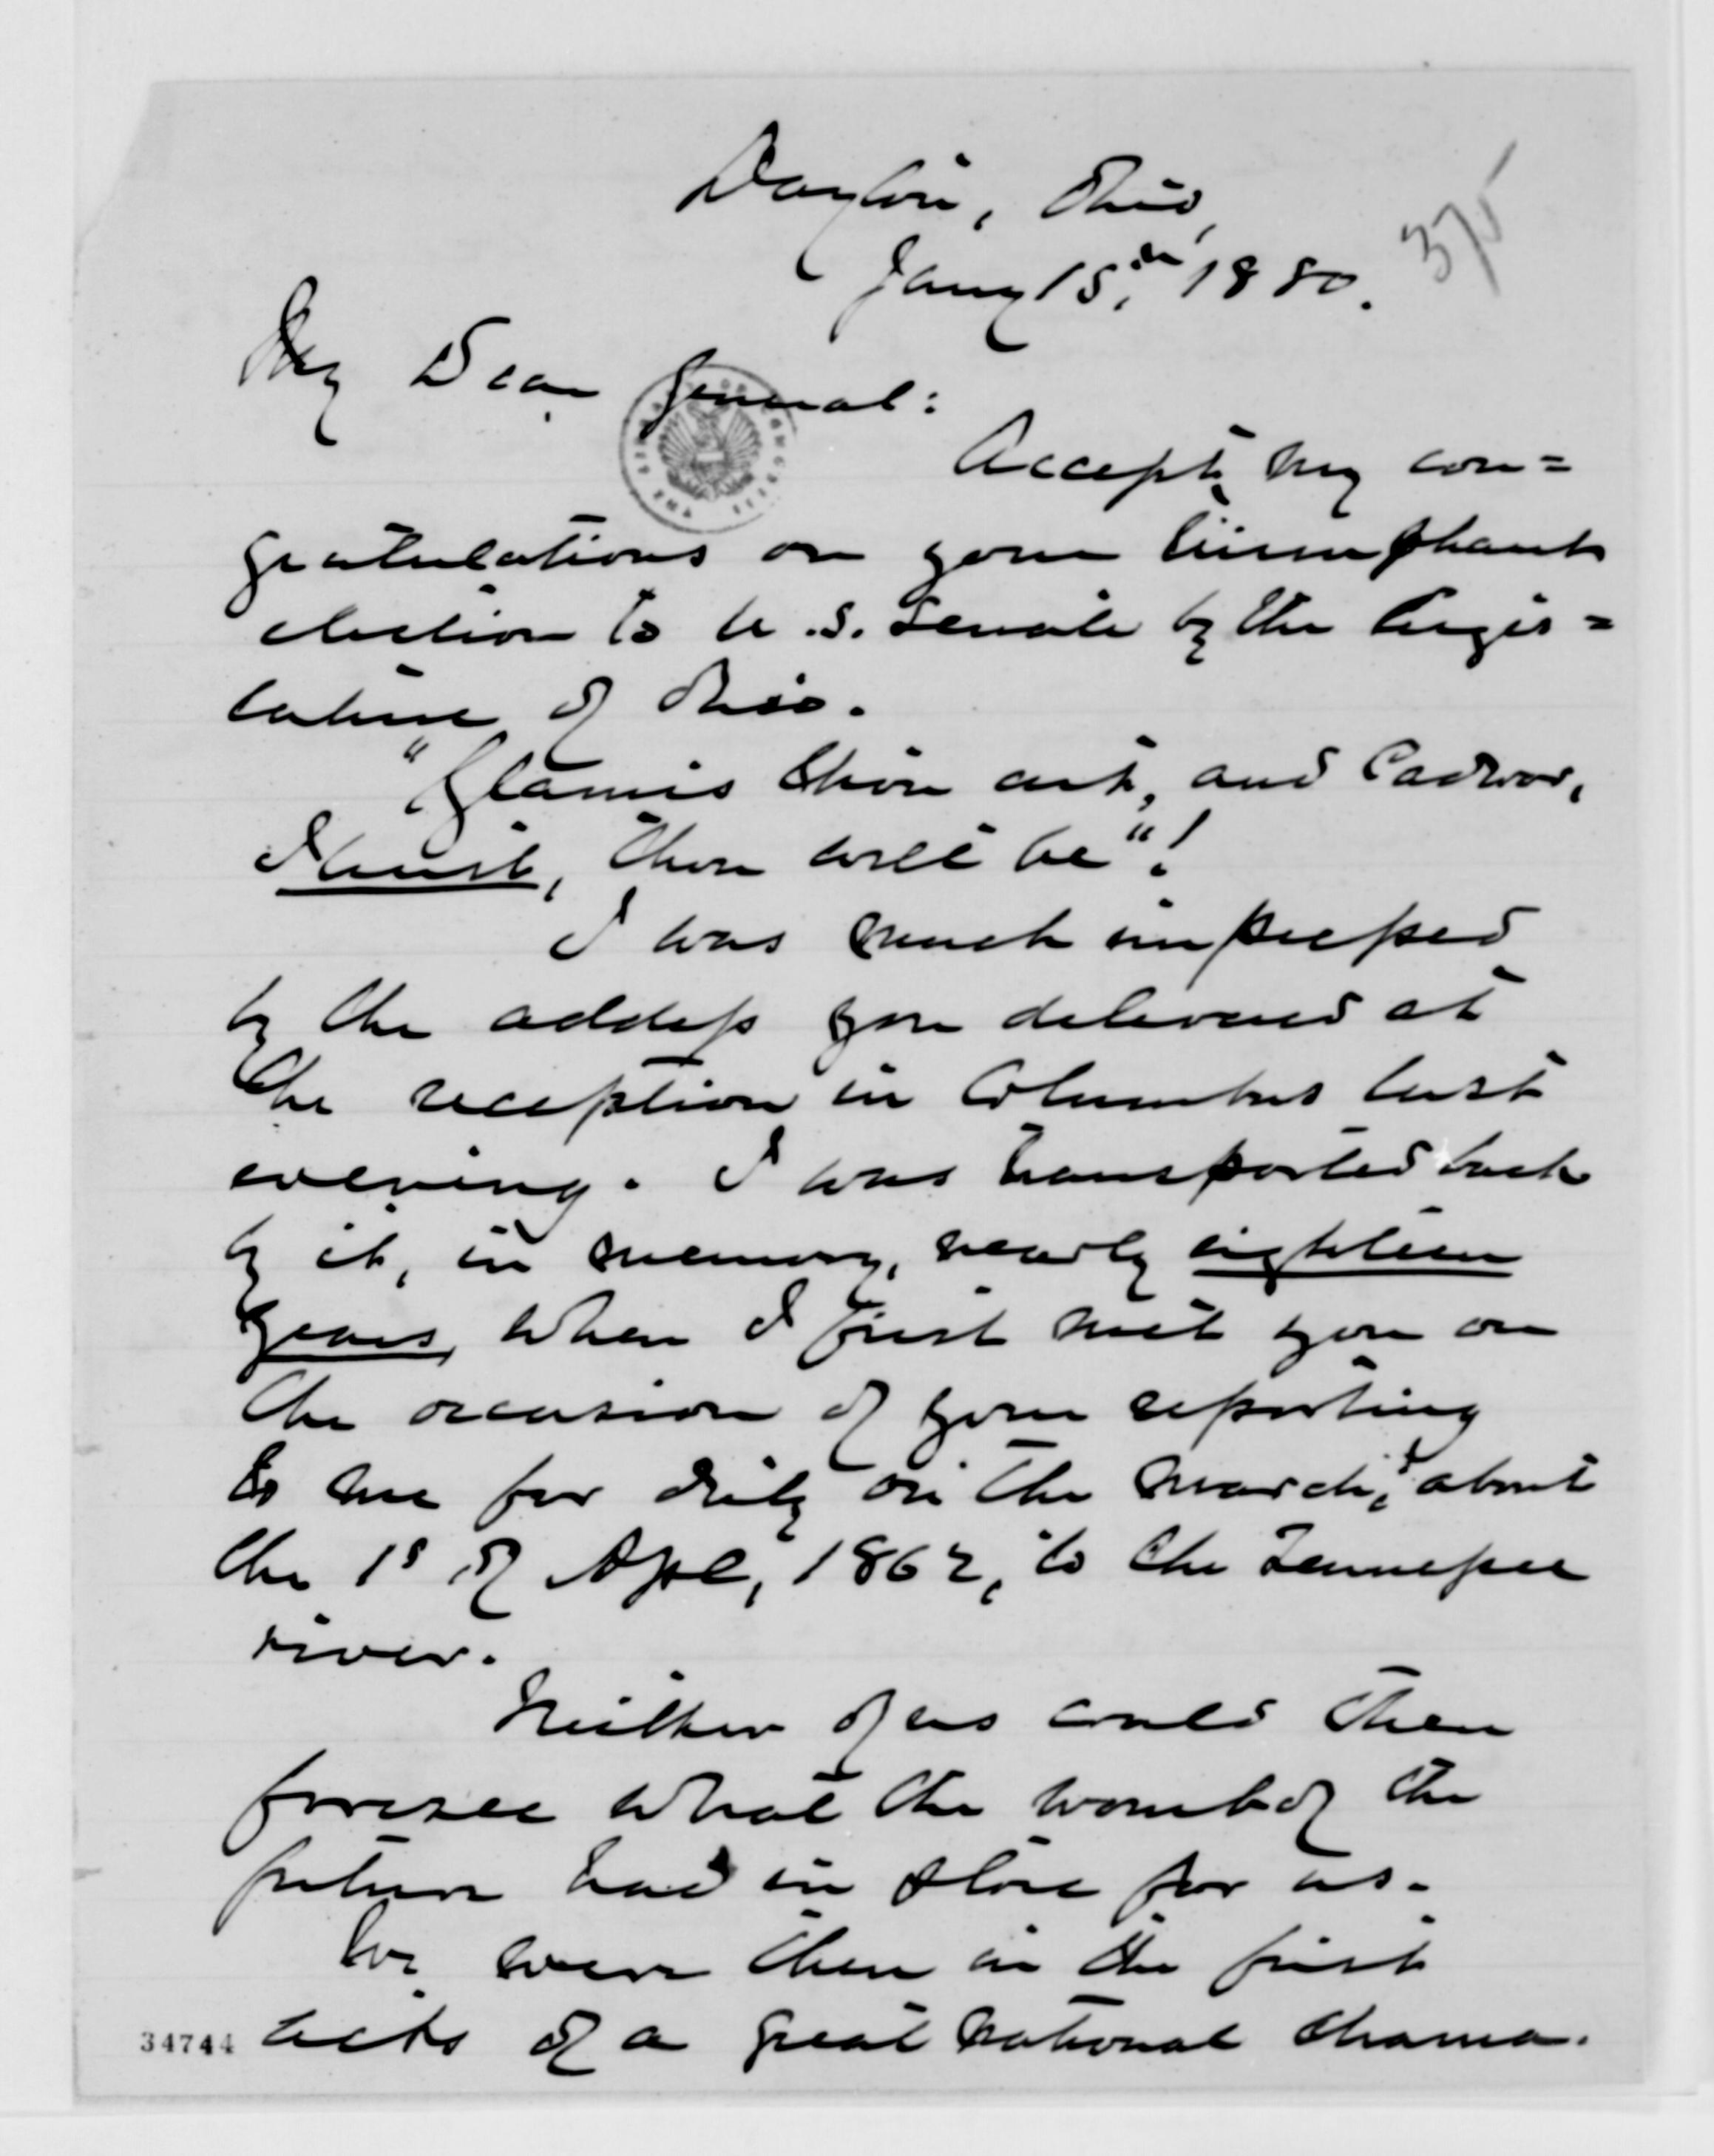 Dayton, Ohio,
Jany 15th, 1880.
375
My Dear General:
Accept my con=
gratulations on your triumphant
election to U.S. Senate by the Legis=
lature of Ohio.
"Glamis thou art, and Cadwor,
I trust, thou wilt be"!
I was much impressed
by the address you delivered at
the reception in Columbus last
evening. I was transported back
by it, in memory, nearly eighteen
years, when I first met you on
the occasion of your reporting
to me for duty on the march, about
the 1s of Apl, 1862, to the Tennessee
river.
Neither of us could then
foresee what the womb of the
future had in store for us.
We were then in the first
acts of a great national drama.
34744